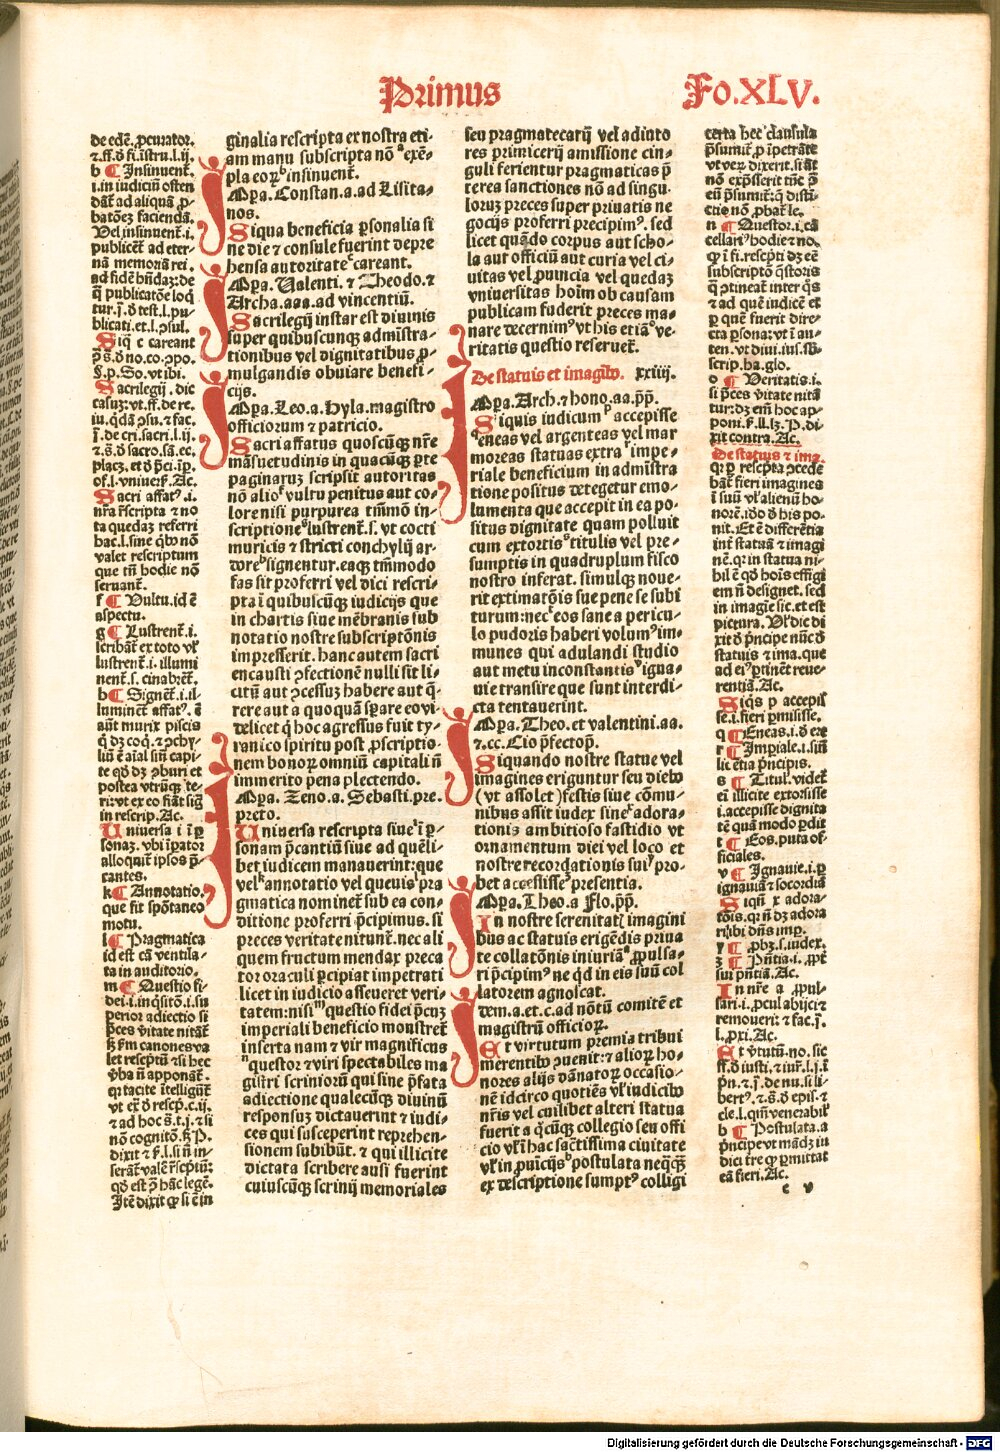 Primus
Fo.XLV.
de edẽ. ꝓcurator.
⁊.ff.ð fi.istru.l.ij.
b ¶ Insinuent̃.
i.in iudiciũ osten
dãt̃ ad aliquã ꝓ-
batõez faciendã.
Vel insinuent̃.i.
publicent̃ ad eter-
nã memoriã rei.
ad fidẽ hñdaz:de
q̃ publicatõe loq̃
tur.j̃.ð test.l.pu-
blicati.et.l.ↄsul.
Siq̃ c careant
§.p.So.vt ibi.
Sacrilegij.dic
casuz:vt.ff.de re.
iu.q̃dã ↄsu.⁊ fac.
j̃.de cri.sacri.l.ij.
⁊.s̃.ð sacro.sã.ec.
of.l.vniuers̃.Ac.
Sacri affat⁹.i.
nr̃a r̃scripta ⁊ no
ta quedaz referri
hac.l.sine q̃bo nõ
valet rescriptum
que tñ hodie nõ
seruant̃.
f ¶ Vultu.id ẽ
aspectu.
g ¶ Lustrent̃.i.
scribãt̃ ex toto vl̃
lustrent̃.i.illumi
nent̃.s.cinabreẽt̃.
h ¶ Signent̃.i.il-
luminent̃ affat⁹.ã
aũt murix piscis
q̃ dz coq̃.⁊ ↄchy-
liũ ẽ aĩal siñ capi-
te qð dz ↄburi et
postea vtrũqz te-
ri:vt ex eo fiãt sig̃
in rescrip.Ac.
Uniuersa i ĩ ꝑ
sonaz.vbi ĩꝑator
alloquit̃ ipsos p̃-
cantes.
k ¶ Annotatio.
que fit spõtaneo
motu.
l ¶ Pragmatica
id est cã ventila-
ta in auditorio.
m ¶ Questio fi-
dei.i.inq̃sitõ.i.su
perior adiectio si
p̃ces ṽitate nitãt̃
hz̃ ẽm canones va
let resceptũ ⁊si hec
ṽba ñ apponãt̃.
qr tacite ĩtelligũt̃
vt ex ð rescp̃.c.ij.
⁊ ad hoc s̃.t.j.⁊ si
nõ cognitõ.hz̃ P.
dixit ⁊ f̃.l.si ñ in-
serãt̃ valẽ r̃sceptũ:
qð est ↄ̃ hãc legẽ.
Itẽ dixit qp si ẽ in
ginalia rescripta ex nostra eti-
am manu subscripta nõ ᵃ exẽ-
pla eoꝝ ᵇ insinuent̃.
Mpa.Constan.a.ad Lisita-
nos.
Siqua beneficia ꝑsonalia si
ne die ⁊ consule fuerint depre
hensa autoritate ᶜ careant.
Mpa.Ualenti.⁊ Theodo.⁊
Archa.aaa.ad vincentiũ.
Sacrilegij instar est diuinis
super quibuscunqz admĩstra-
tionibus vel dignitatibus ꝓ-
mulgandis obuiare benefi-
cijs.
Mpa.Leo.a.Hyla.magistro
officiorum ⁊ patricio.
Sacri affatus quoscũqz nr̃e
mãsuetudinis in quacũqz ꝑte
paginaruz scripsit autoritas
nõ alio ᶠ vultu penitus aut co-
lore nisi purpurea tm̃mõ in-
scriptione ᵍ lustrent̃.s.vt cocti
muricis ⁊ stricti conchylij ar-
dore ʰ signentur.eaqz tm̃modo
fas sit proferri vel dici rescri-
pta ĩ quibuscũqz iudicijs que
in chartis siue mẽbranis sub
notatio nostre subscriptõnis
impresserit.hanc autem sacri
encausti ↄfectionẽ nulli sit li-
citũ aut ↄcessuz habere aut q̃-
rere aut a quoquã sꝑare eo vi-
delicet q̃ hoc agressus fuit ty-
ranico spiritu post ꝓscriptio-
nem bonoꝝ omniũ capitali ñ
immerito pena plectendo.
Mpa.Zeno.a.Sebasti.pre.
preto.
Uniuersa rescripta siue ⁱ ĩ ꝑ-
sonam p̃cantiũ siue ad quẽli-
bet iudicem manauerint:que
vel ᵏ annotatio vel queuis ˡ pra
gmatica nominet̃ sub ea con-
ditione proferri p̃cipimus.si
preces veritate nitunt̃.nec ali
quem fructum mendax preca
tor oraculi ꝑcipiat impetrati
licet in iudicio asseueret veri-
tatem:nisi ᵐ questio fidei p̃cuz
imperiali beneficio monstret̃
inserta nam ⁊ vir magnificus
ⁿ questor ⁊ viri spectabiles ma
gistri scriniorũ qui sine p̃fata
adiectione qualecũqz diuinũ
responsuz dictauerint ⁊ iudi-
ces qui susceperint reprehen-
sionem subibũt.⁊ qui illicite
dictata scribere ausi fuerint
cuiuscũqz scrinij memoriales
seu pragmatecarij vel adiuto
res primicerij amissione cin-
guli ferientur pragmaticas p̃
terea sanctiones nõ ad singu-
loruz preces super priuatis ne
gocijs proferri precipim⁹.sed
licet quãdo corpus aut scho-
la aut officiũ aut curia vel ci-
uitas vel ꝓuincia vel quedaz
vniuersitas hoĩm ob causam
publicam fuderit preces ma-
nare decernim⁹ vt his etiã ᵒ ve-
ritatis questio reseruet̃.
De statuis et imagĩbo. xxiiij.
Mpa.Arch.⁊ hono.aa.p̃p̃.
Siquis iudicum ᵖ accepisse
ᵍ eneas vel argenteas vel mar
moreas statuas extra ʳ impe-
riale beneficium in admĩstra
tione positus detegetur emo-
lumenta que accepit in ea po-
situs dignitate quam polluit
cum extortis ˢ titulis vel pre-
sumptis in quadruplum fisco
nostro inferat.simulqz noue-
rit extimatõis sue pene se subi
turum:nec ᵗ eos sane a pericu-
lo pudoris haberi volum⁹ im-
munes qui adulandi studio
aut metu inconstantis ᵛ igna-
uie transire que sunt interdi-
cta tentauerint.
Mpa.Theo.et valentini.aa.
⁊.cc.Cio p̃fectop̃.
Siquando nostre statue vel
imagines eriguntur seu diebo
(vt assolet)festis siue cõmu-
nibus assit iudex sine ˣ adora-
tionis ambitioso fastidio vt
ornamentum diei vel loco et
nostre recordationis sui ʸ pro-
bet accessisse ᶻ presentia.
Mpa.Theo.a Flo.p̃p̃.
In nostre serenitatꝭ imagini
bus ac statuis erigẽdis priua
te collatõnis iniuriã ᵃ ꝓpulsa-
ri p̃cipim⁹ ne qð in eis suũ col
latorem agnoscat.
dem.a.et.c.ad notũ comitẽ et
magistrũ officioꝝ.
Et virtutum premia tribui
merentibo ↄuenit:⁊ alioꝝ ho-
nores alijs dãnatoꝝ occasio-
nẽ idcirco quotiẽs vl̃ iudicibo
nr̃is vel cuilibet alteri statua
fuerit a q̃cũqz collegio seu offi
cio vl̃ ĩ hac sac̃tissima ciuitate
vl̃ in ꝓuĩcijs ᵇ postulata neqq̃
ex descriptione sumpt⁹ colligi
certa hec clausula
p̃sumit̃ ꝙ ĩpetrãte
vt veꝝ dixerit.si aũt
nõ exp̃sserit tũc ↄ̃
eũ p̃sumit̃:q̃ disti-
ctio nõ ꝓbat̃ le.
n ¶ Questor.i.cã
cellari⁹ hodie ⁊ no.
ꝙ ĩ fi.rescp̃ti dz eẽ
subscriptõ q̃storis
q̃ ↄtineat inter q̃s
⁊ ad quẽ iudicẽ et
ꝑ quẽ fuerit dire-
cta ꝑsona:vt ĩ au-
ten.vt diui.ius.sb̃-
scrip.ha.glo.
o ¶ Veritatis.i.
si p̃ces ṽitate nitã
tur:dz em̃ hoc ap-
poni.f̃.l.lz̃.P.di-
xit contra.Ac.
De statuis ⁊ ima.
qr ꝑ rescp̃ta ↄcede
bãt̃ fieri imagines
ĩ suũ vl̃ alienũ ho-
norẽ.iðo ð his po-
nit.Et ẽ differẽtia
int̃ statuã ⁊ imagi
nẽ.qr in statua ni-
hil ẽ qð hoĩs effigi
em ñ designet.sed
in imagĩe sic.et est
pictura.Vl̃ dic di
xit ð p̃ncipe nũc ð
statuis ⁊ ima.que
ad ei⁹ ꝑtinẽt reue-
rentiã.Ac.
Siq̃s p accepis
se.i.fieri ꝑmisisse.
q ¶ Eneas.i.ð ere
r ¶ Impiale.i.siñ
licẽtia p̃ncipis.
s ¶ Titul⁹.videt̃
ei illicite extorsisse
i.accepisse dignita
tẽ quã modo ꝑdit
t ¶ Eos.puta of-
ficiales.
v ¶ Ignauie.i.ꝑ
ignauiã ⁊ socordiã
Siqñ x adora-
tõis.qr ñ dz adora
ri nisi dñs imp̃.
y ¶ ꝓbz.s.iudex.
z ¶ Pñtia.i.ꝓpt̃
sui pñtiã.Ac.
In nr̃e a ꝓpul-
sari.i.ꝓcul abijci ⁊
remoueri:⁊ fac.j̃.
l.ꝓxi.Ac.
Et ṽtutũ.no.sic
ff.ð iusti.⁊ iur̃.l.j.ĩ
p̃n.⁊.j̃.de nu.si li-
bert⁹.⁊.s̃.ð epis.⁊
cle.l.qm̃ venerabil̃
b ¶ Postulata.a
p̃ncipe vt mãdz iu
dici tre ꝙ ꝑmittat
eã fieri.Ac.
e v
Digitalisierung gefördert durch die Deutsche Forschungsgemeinschaft - DFG